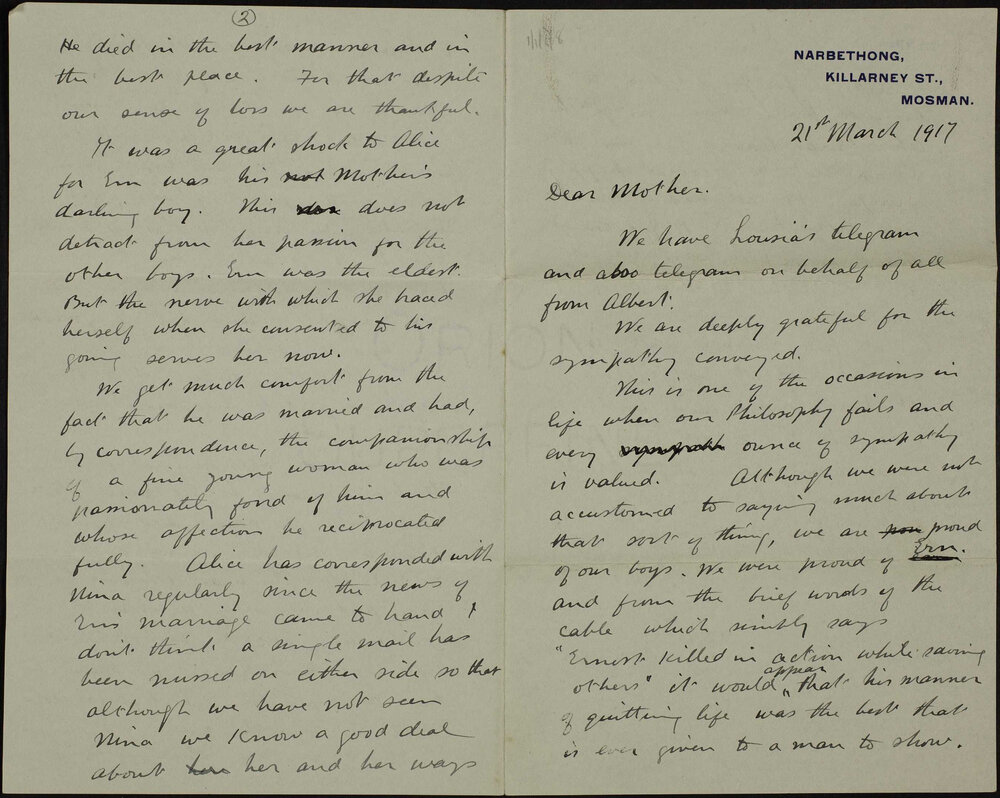 NARBETHONG,
KILLARNEY ST.,
MOSMAN.
21st March 1917
Dear Mother.
We have Lousia's telegram
and also telegram on behalf of all
from Albert.
We are deeply grateful for the
sympathy conveyed.
This is one of the occasions in
life when our Philosophy fails and
every sympath ounce of sympathy
is valued. Although we were not
accustomed to saying much about
that sort of thing, we are proud
of our boys. We were proud of Ern.
and from the brief words of the
cable which simply says
"Ernest Killed in action while saving
others" it would appear that his manner
of quitting life was the best that
is ever given to a man to show.
(2)
He died in the best manner and in
the best place. For that despite
our sense of loss we are thankful.
It was a great shock to Alice
for Ern was his not Mother's
darling boy. This does not
detract from her passion for the
other boys. Ern was the eldest.
But the nerve with which she braced
herself when she consented to his
going serves her now.
We get much comfort from the
fact that he was married and had,
by correspondence, the companionship
of a fine young woman who was
passionately fond of him and
whose affection he reciprocated
fully. Alice has corresponded with
Nina regularly since the news of
Ern's marriage came to hand I
don't think a single mail has
been missed on either side so that
although we have not seen
Nina we know a good deal
about her and her ways